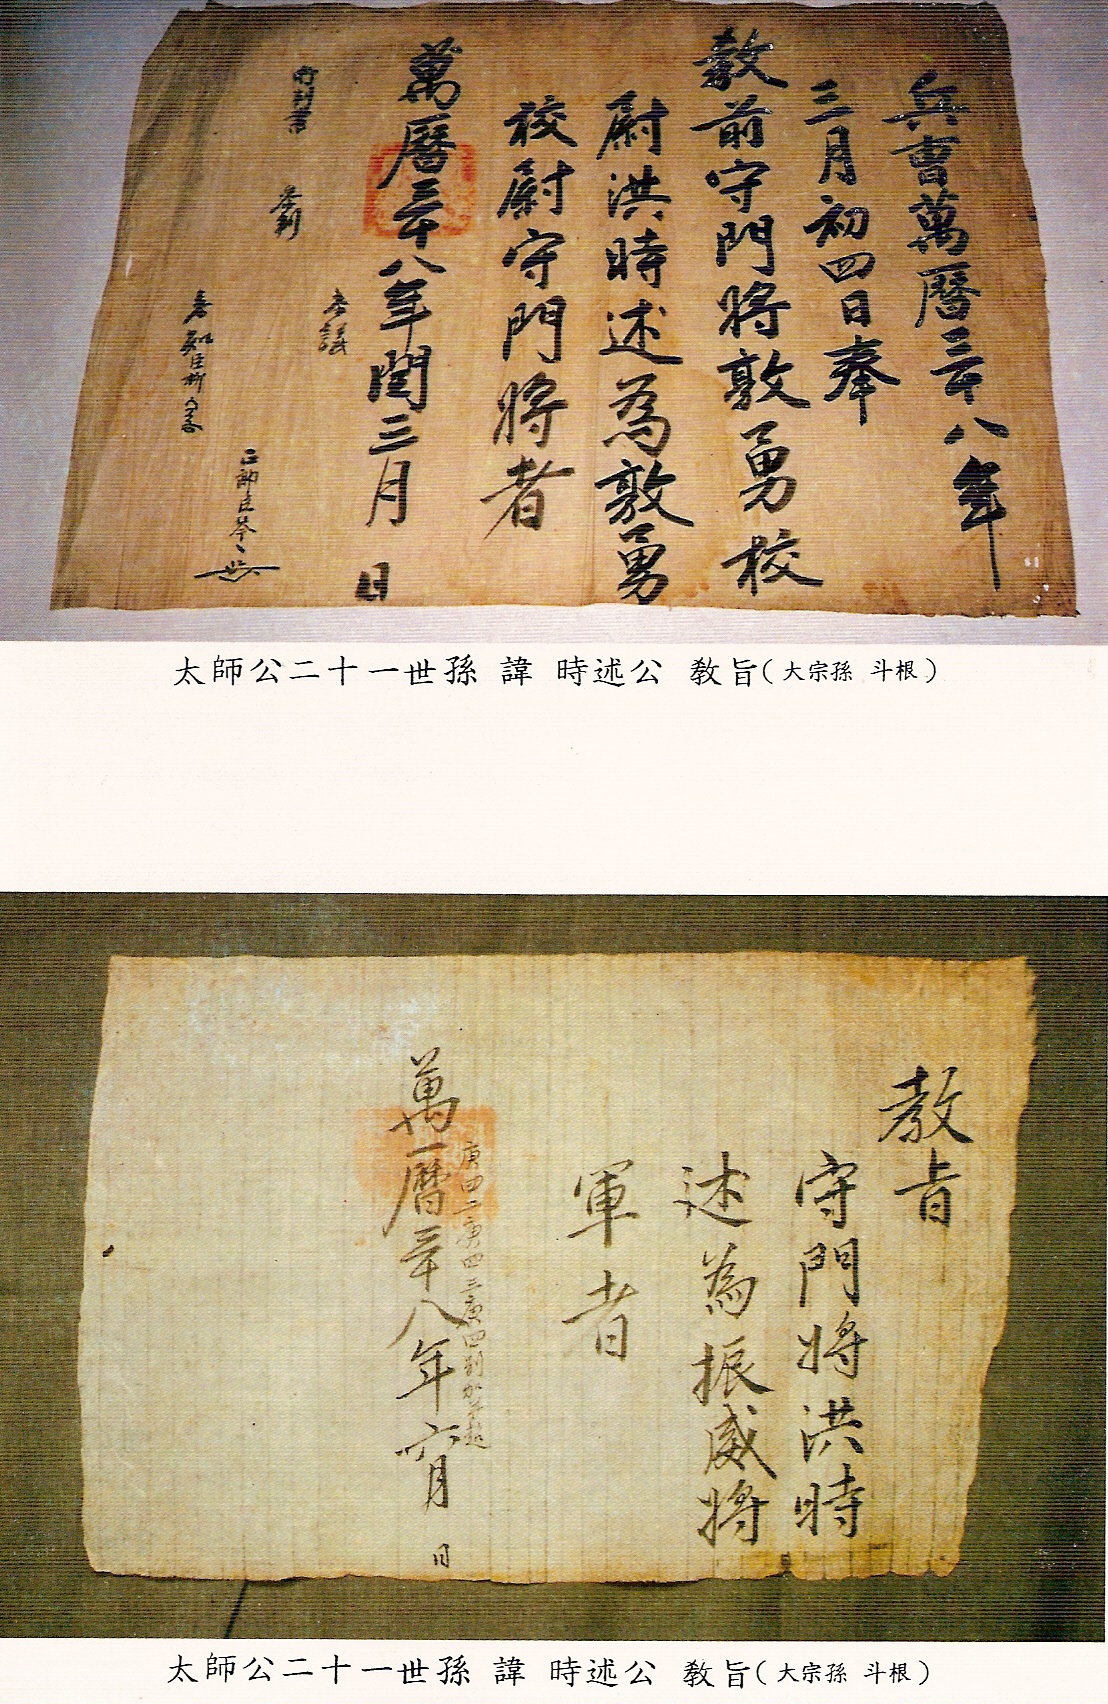 兵曹萬曆三十八年
三月初四日奉
教前守門將敦勇校
尉洪時述為敦勇
校尉守門將者
萬曆三十八年閏三月 日
判書
參判
參議
參知臣柳
正郎臣
太師公二十一世孫 諱 時述公 敎旨(大宗孫 斗根)
教旨
守門將洪時
述為振威將
軍者
萬曆三十八年六月 日
太師公二十一世孫 諱 時述公 敎旨(大宗孫 斗根)